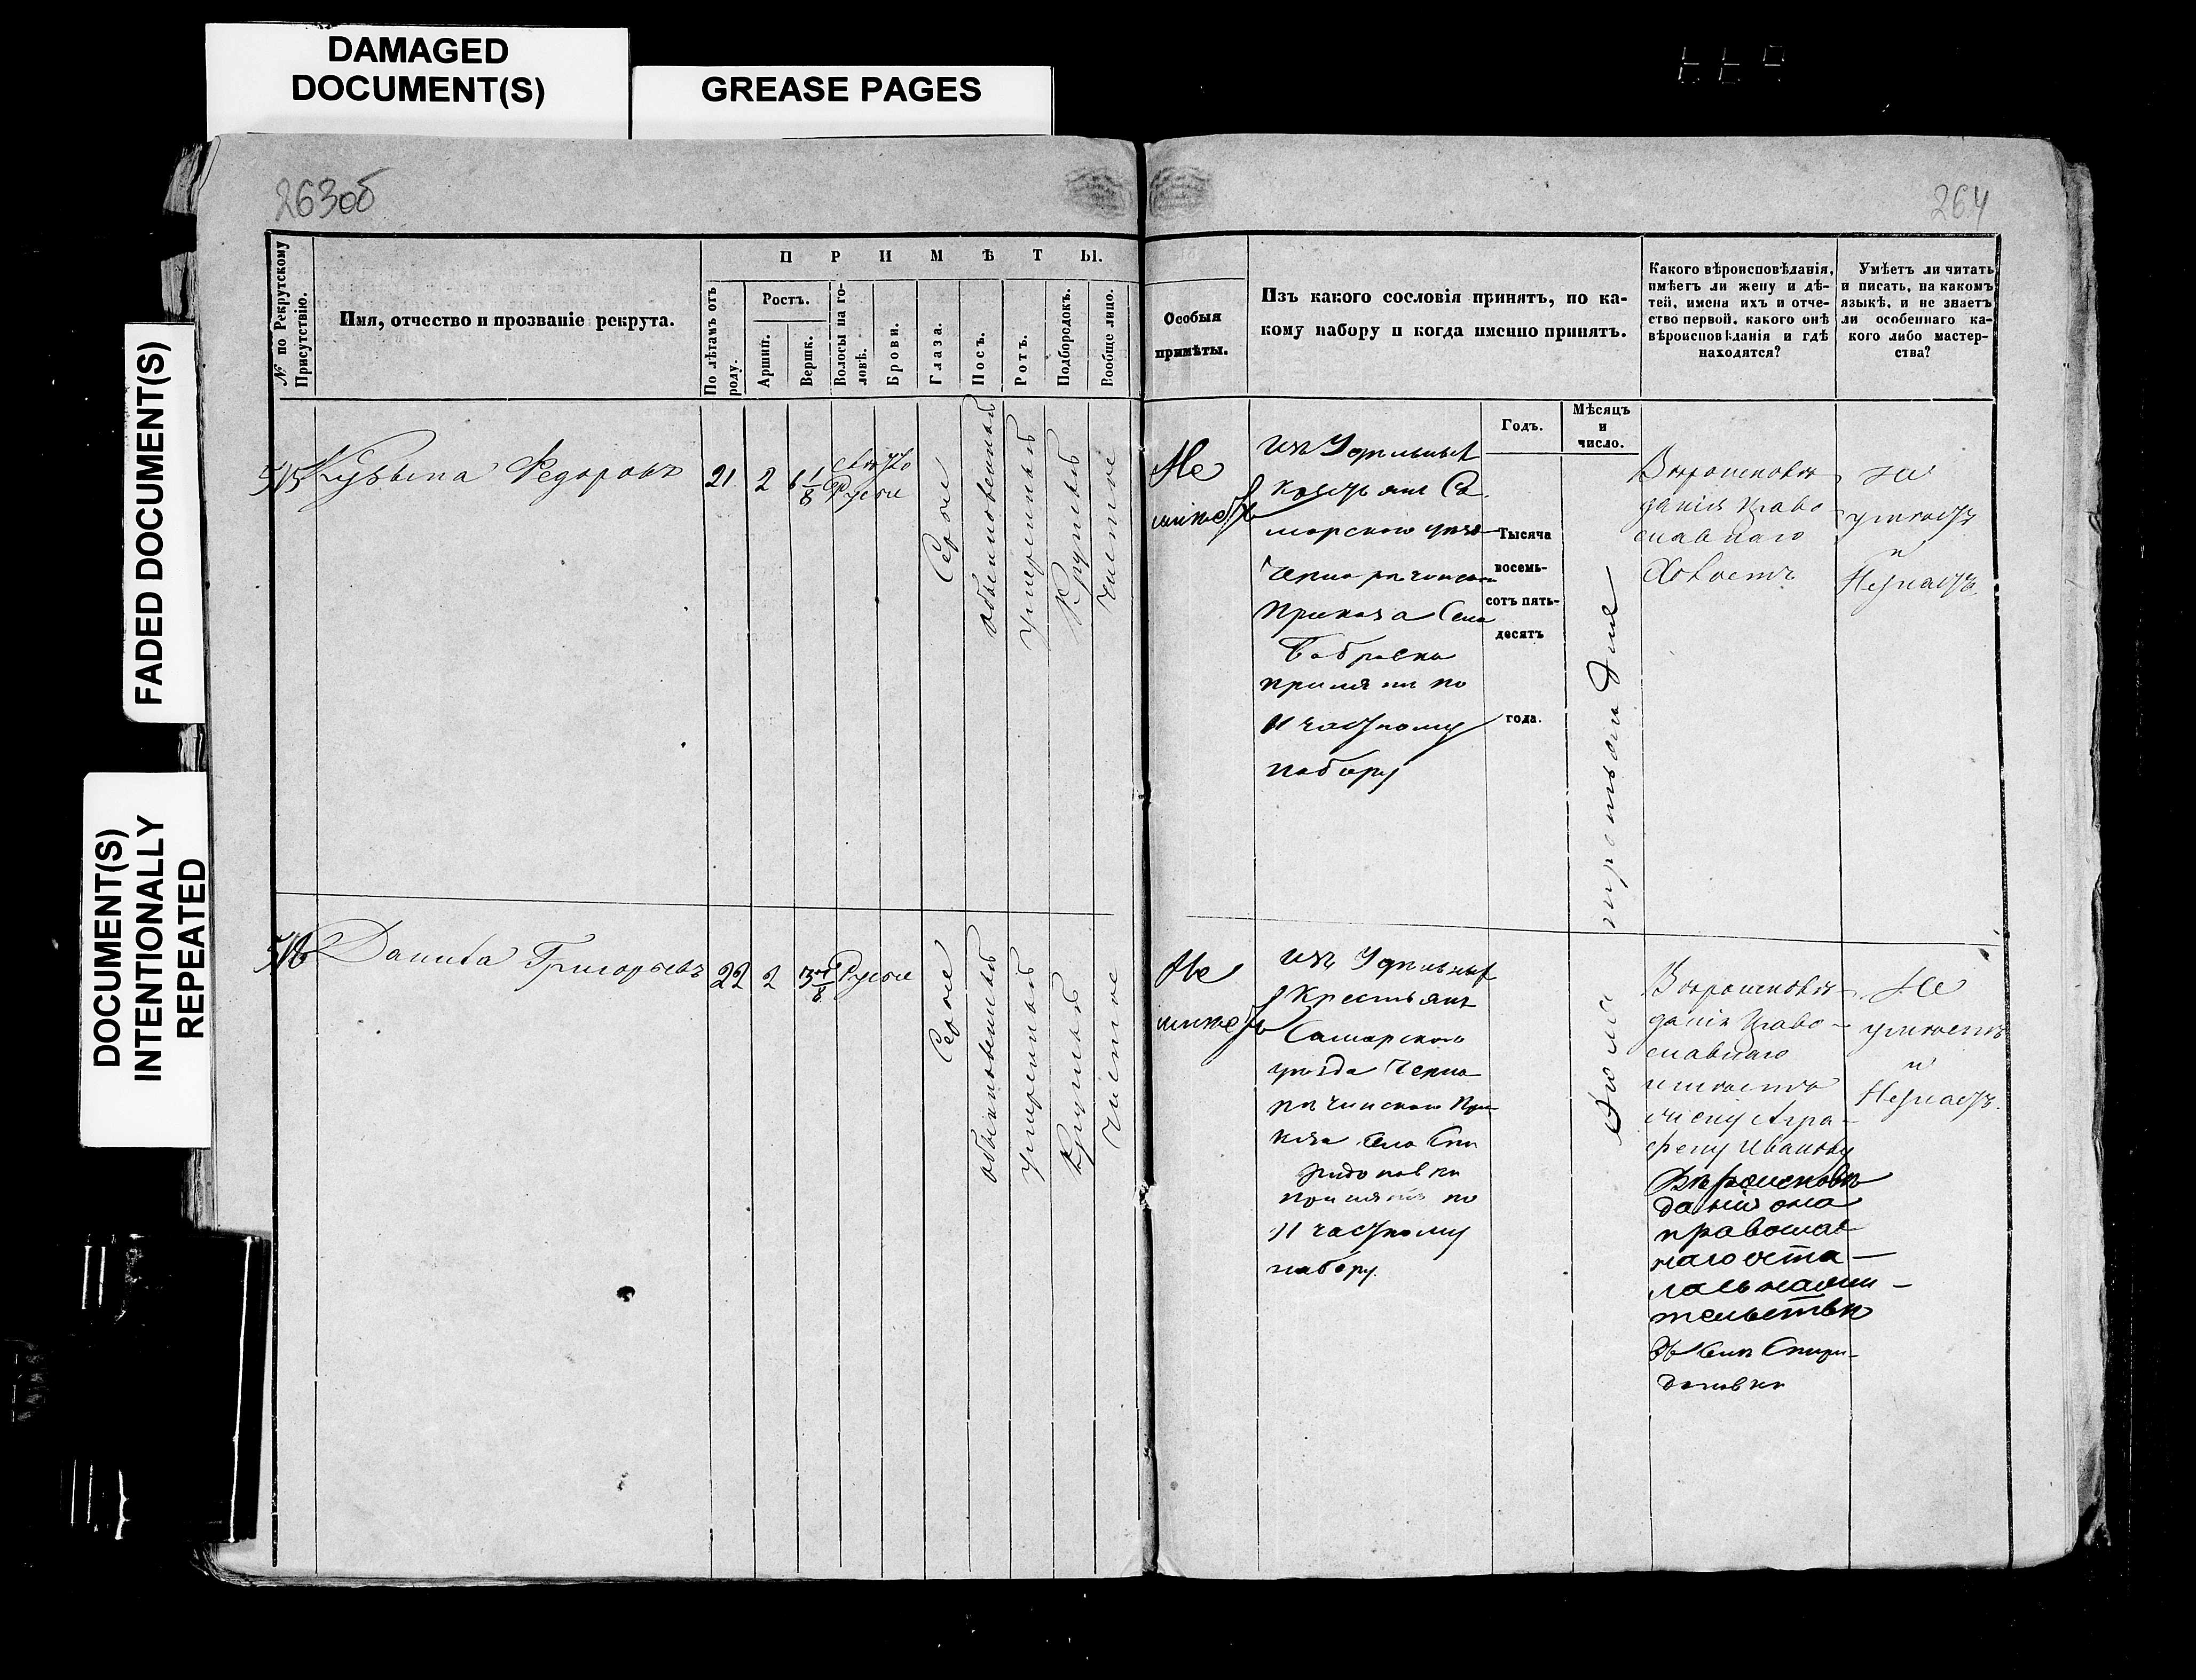 DAMAGED
DOCUMENT(S)
GREASE PAGES
FADED DOCUMENT(S)
DOCUMENT(S)
INTENTIONALLY
REPEATED
263об
264
№ по Рекрутскому
Присутствію.
Имя, отчество и прозваніе рекрута.
ПРИМѢТЫ.
По лѣтамъ отъ
роду.
Ростъ.
Аршин.
Вершк.
Волосы на го-
ловѣ.
Брови.
Глаза.
Носъ.
Ротъ.
Подбородокъ.
Вообще лицо.
Особыя
примѣты.
Изъ какого сословія принятъ, по ка-
кому набору и когда именно принятъ.
Какого вѣроисповѣданія,
имѣетъ ли жену и дѣ-
тей, имена ихъ и отче-
ство первой, какого онѣ
вѣроисповѣданія и гдѣ
находятся?
Умѣетъ ли читать
и писать, на какомъ
языкѣ, и не знаетъ
ли особеннаго ка-
кого либо мастер-
ства?
Годъ.
Мѣсяцъ
и
число.
515
Кузьма Федоровъ
21
2
6 1/8
свѣтло
Русые
Серые
обыкновенный
умеренный
Круглый
Чистое
Не
имеетъ
изъ Удельныхъ
крестьянъ Са
марского уезда
Черноречинскаго
Приказа Села
принятъ по
11 частному
набору
Тысяча
восемь-
сотъ пять-
десятъ
года.
Вероисповѣ
данія Право
славнаго
Холостъ
не
умѣетъ
и
Незнаетъ.
516
Данила Григорьевъ
22
2
3 7/8
Русые
Серые
обыкновенный
умеренный
Круглый
Чистое
Не
имеетъ
изъ Удельныхъ
Крестьянъ
Самарского
уезда Черно
речинскаго При
каза села Спи
ридоновки
принятъ по
11 частному
набору.
Июля третьяго дня
Вероисповѣ
данія Право-
славнаго
имеетъ
жену Агра-
фену Иванову
Вѣроисповѣ
данія она
православ
наго оста-
лась нажи-
тельствѣ
въ селѣ Спири-
доновки
Не
умѣетъ
и
Незнаетъ.